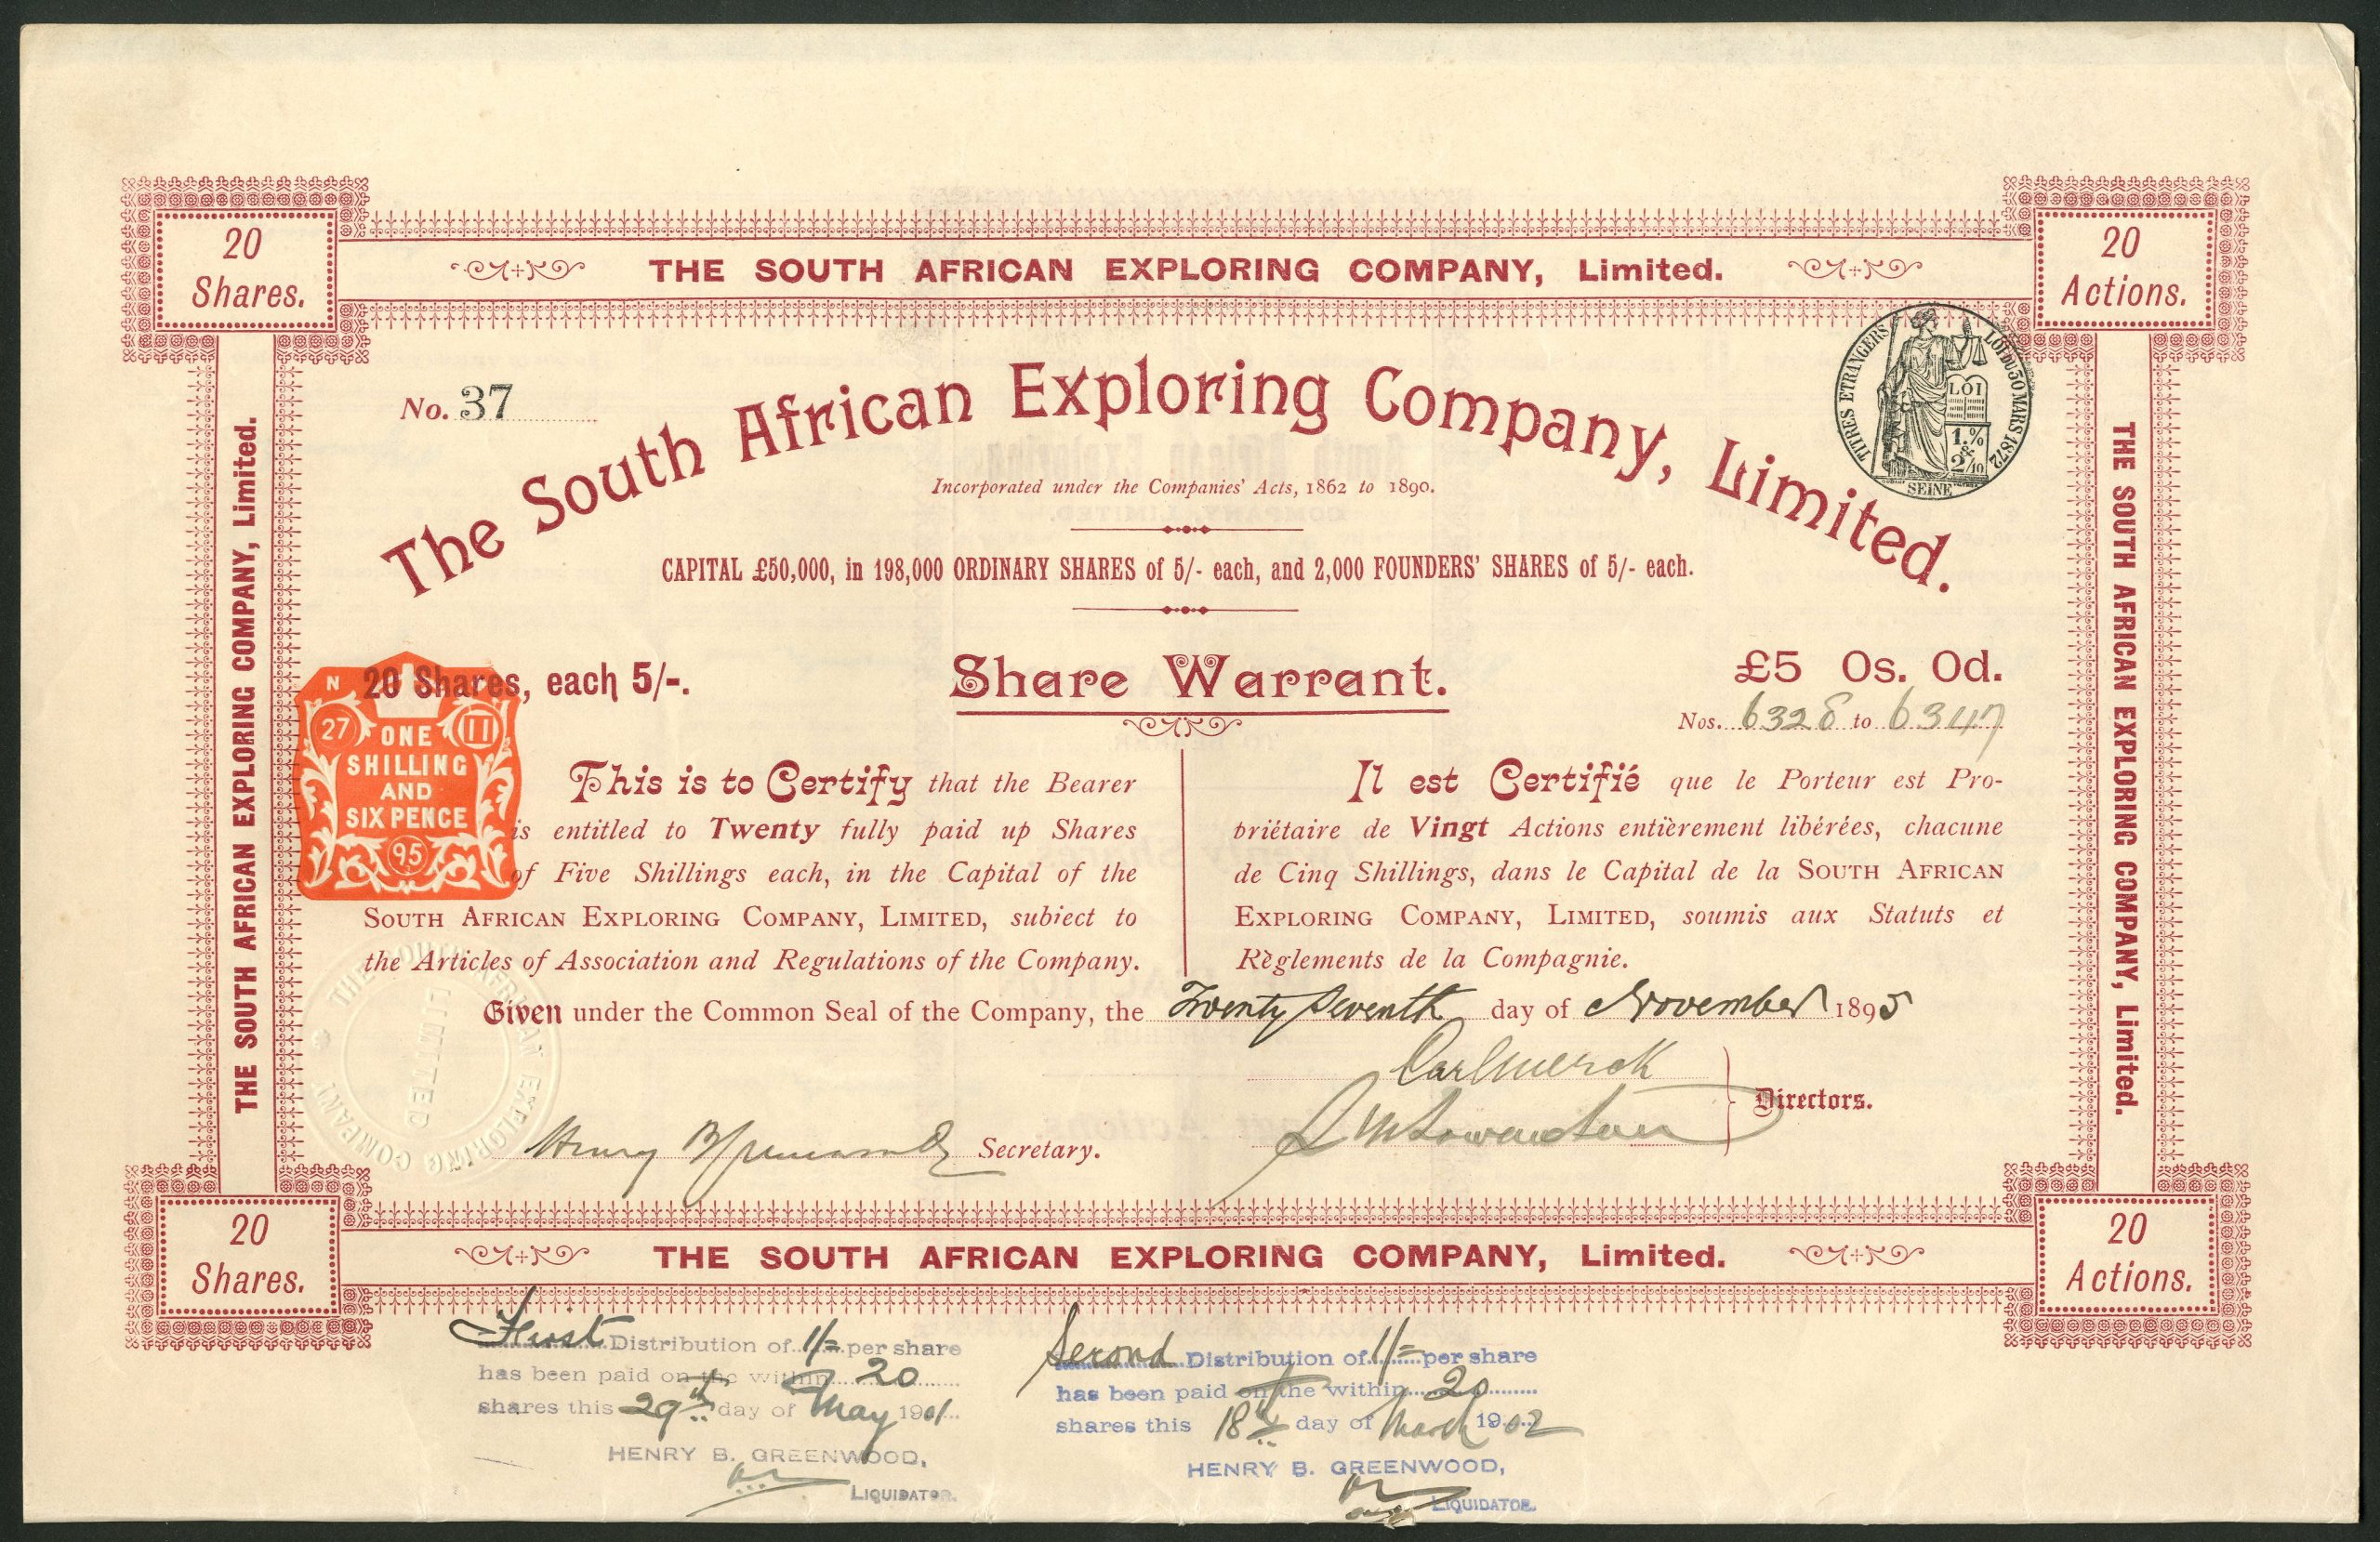 20
Shares.
THE SOUTH AFRICAN EXPLORING COMPANY, Limited.
20
Actions.
TITRES ETRANGERS
LOI DU 30 MARS 1872
LOI
1.%
&
2/10
SEINE
No. 37
The South African Exploring Company, Limited.
Incorporated under the Companies' Acts, 1862 to 1890.
CAPITAL £50,000, in 198,000 ORDINARY SHARES of 5/- each, and 2,000 FOUNDERS' SHARES of 5/- each.
THE SOUTH AFRICAN EXPLORING COMPANY, Limited.
THE SOUTH AFRICAN EXPLORING COMPANY, Limited.
20 Shares, each 5/-.
Share Warrant.
£5 0s. 0d.
Nos. 6328 to 6347
N
27
11
ONE
SHILLING
AND
SIX PENCE
95
This is to Certify that the Bearer
is entitled to Twenty fully paid up Shares
of Five Shillings each, in the Capital of the
SOUTH AFRICAN EXPLORING COMPANY, LIMITED, subject to
the Articles of Association and Regulations of the Company.
Il est Certifié que le Porteur est Pro-
priétaire de Vingt Actions entièrement libérées, chacune
de Cinq Shillings, dans le Capital de la SOUTH AFRICAN
EXPLORING COMPANY, LIMITED, soumis aux Statuts et
Règlements de la Compagnie.
Given under the Common Seal of the Company, the Twenty Seventh day of November 1895
THE SOUTH AFRICAN EXPLORING COMPANY
LIMITED
Directors.
Henry B Greenwood Secretary.
20
Shares.
THE SOUTH AFRICAN EXPLORING COMPANY, Limited.
20
Actions.
First Distribution of 1/= per share
has been paid on the within 20
shares this 29th day of May 1901
HENRY B. GREENWOOD,
LIQUIDATOR.
Second Distribution of 1/= per share
has been paid on the within 20
shares this 18th day of March 1902
HENRY B. GREENWOOD,
LIQUIDATOR.